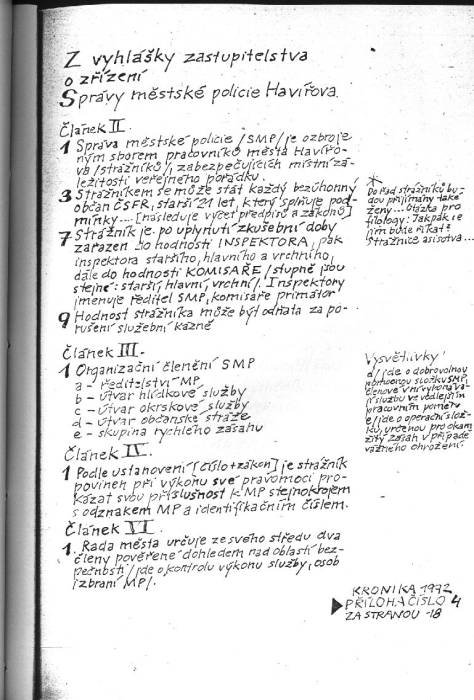 Z vyhlášky zastupitelstva
o zřízení
Správy městské policie Havířova.
Článek II.
1 Správa městské policie /SMP/ je ozbroje
ným sborem pracovníků města Havířo-
va /strážníků/, zabezpečujících místní zá-
ležitosti veřejného pořádku.
3 Strážníkem se může stát každý bezúhonný
občan ČSFR, starší 21 let, který splňuje pod-
mínky... [následuje výčet předpisů a zákonů]
7 Strážník je po uplynutí zkušební doby
zařazen do hodnosti INSPEKTORA, pak
inspektora staršího, hlavního a vrchního,
dále do hodnosti KOMISAŘE /stupně jsou
stejné: starší, hlavní, vrchní/. Inspektory
jmenuje ředitel SMP, komisaře primátor
9 Hodnost strážníka může být odňata za po-
rušení služební kázně
*
Do řad strážníků bu-
dou přijímány také
ženy... Otázka pro
filology: Jakpak se
jim bude říkat?
Strážnice asistova...
Článek III.
1 Organizační členění SMP
a - ředitelství MP
b - útvar hlídkové služby
c - útvar okrskové služby
d - útvar občanské stráže
e - skupina rychlého zásahu
Vysvětlivky:
d/ jde o dobrovolnou
pomocnou složku SMP,
členové v ní vykonáva-
jí službu ve vedlejším
pracovním poměru
e/ jde o operační slož-
ku, určenou pro okam
žitý zásah v případě
vážného ohrožení.
Článek IV.
1 Podle ustanovení [číslo+zákon] je strážník
povinen při výkonu své pravomoci pro-
kázat svou příslušnost k MP stejnokrojem
s odznakem MP a identifikačním číslem.
Článek VI.
1. Rada města určuje ze svého středu dva
členy pověřené dohledem nad oblastí bez-
pečnosti /jde o kontrolu výkonu služby, osob
i zbraní MP/.
KRONIKA 1992
PŘÍLOHA ČÍSLO 4
ZA STRANOU -18